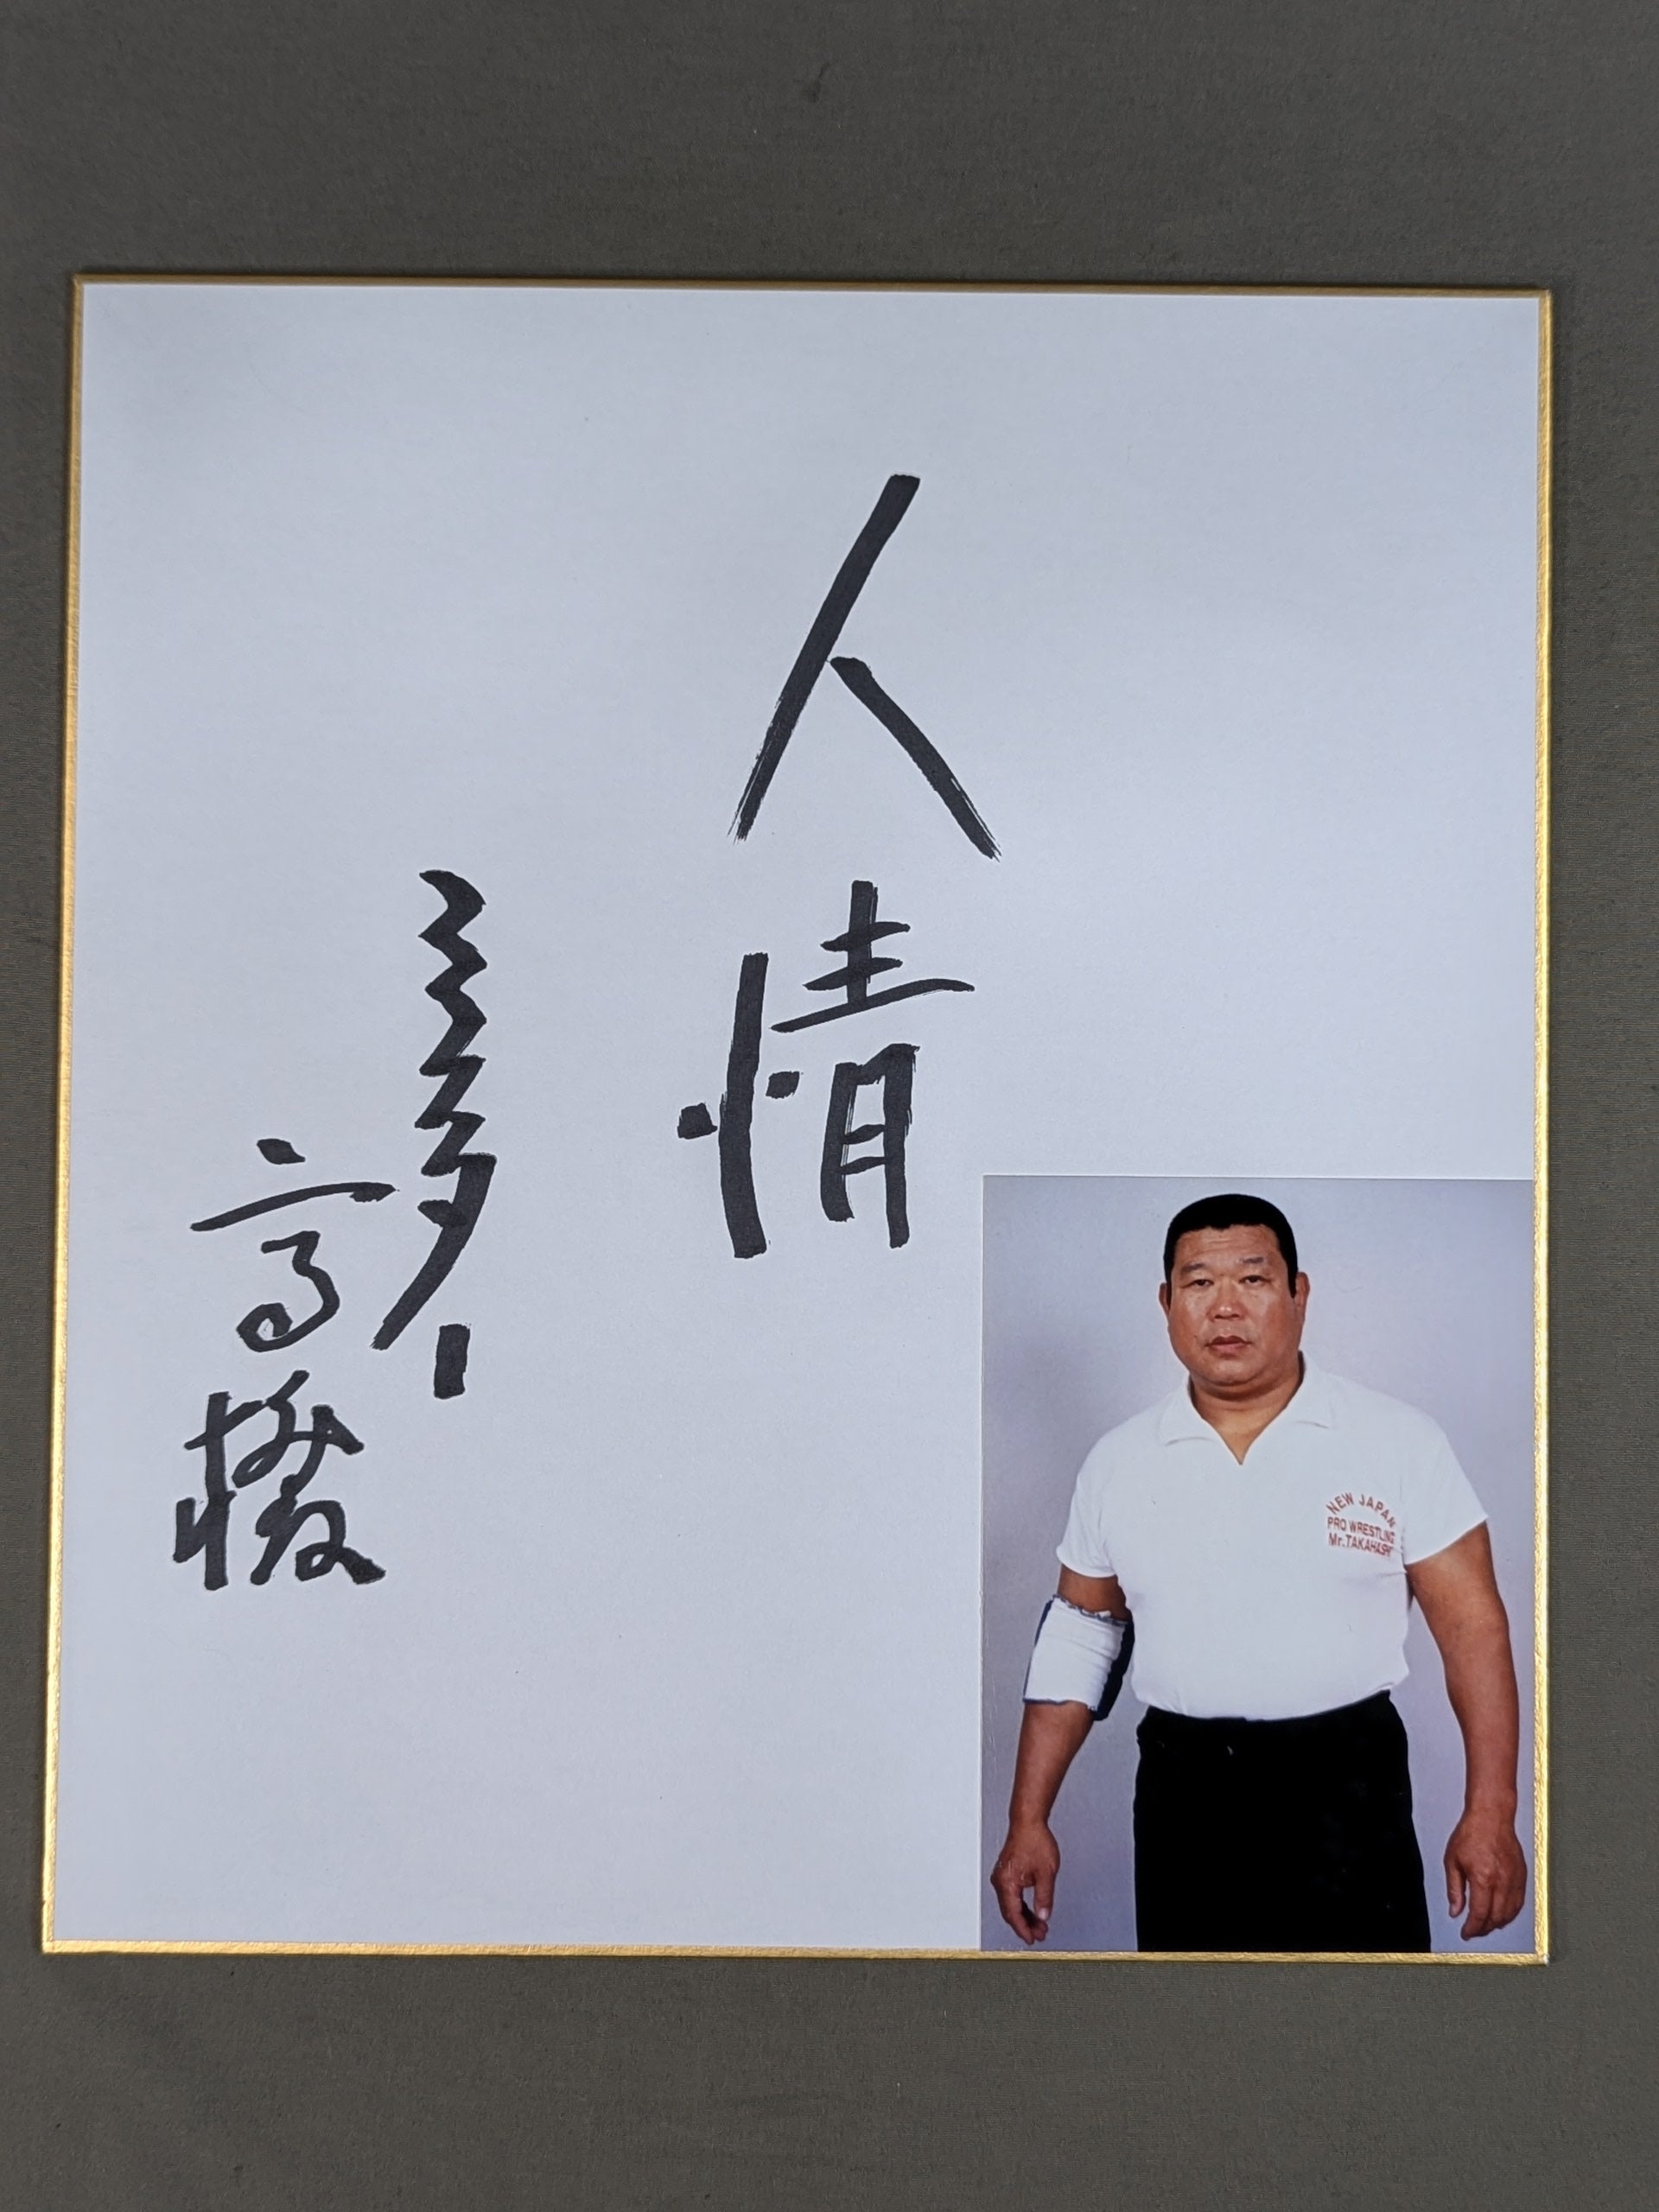 人情
ミスター
高橋
NEW JAPAN
PRO WRESTLING
Mr.TAKAHASHI